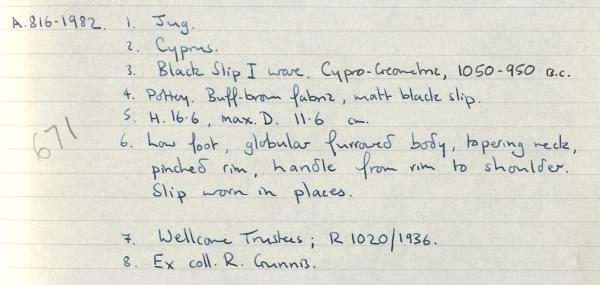 A.816-1982. 1. Jug.
2. Cyprus.
3. Black Slip I ware. Cypro-Geometric, 1050-950 B.C.
4. Pottery. Buff-brown fabric, matt black slip.
5. H. 16.6, max. D. 11.6 cm.
671
6. Low foot, globular furrowed body, tapering neck,
pinched rim, handle from rim to shoulder.
Slip worn in places.
7. Wellcome Trustees; R 1020/1936.
8. Ex coll. R. Gunnis.